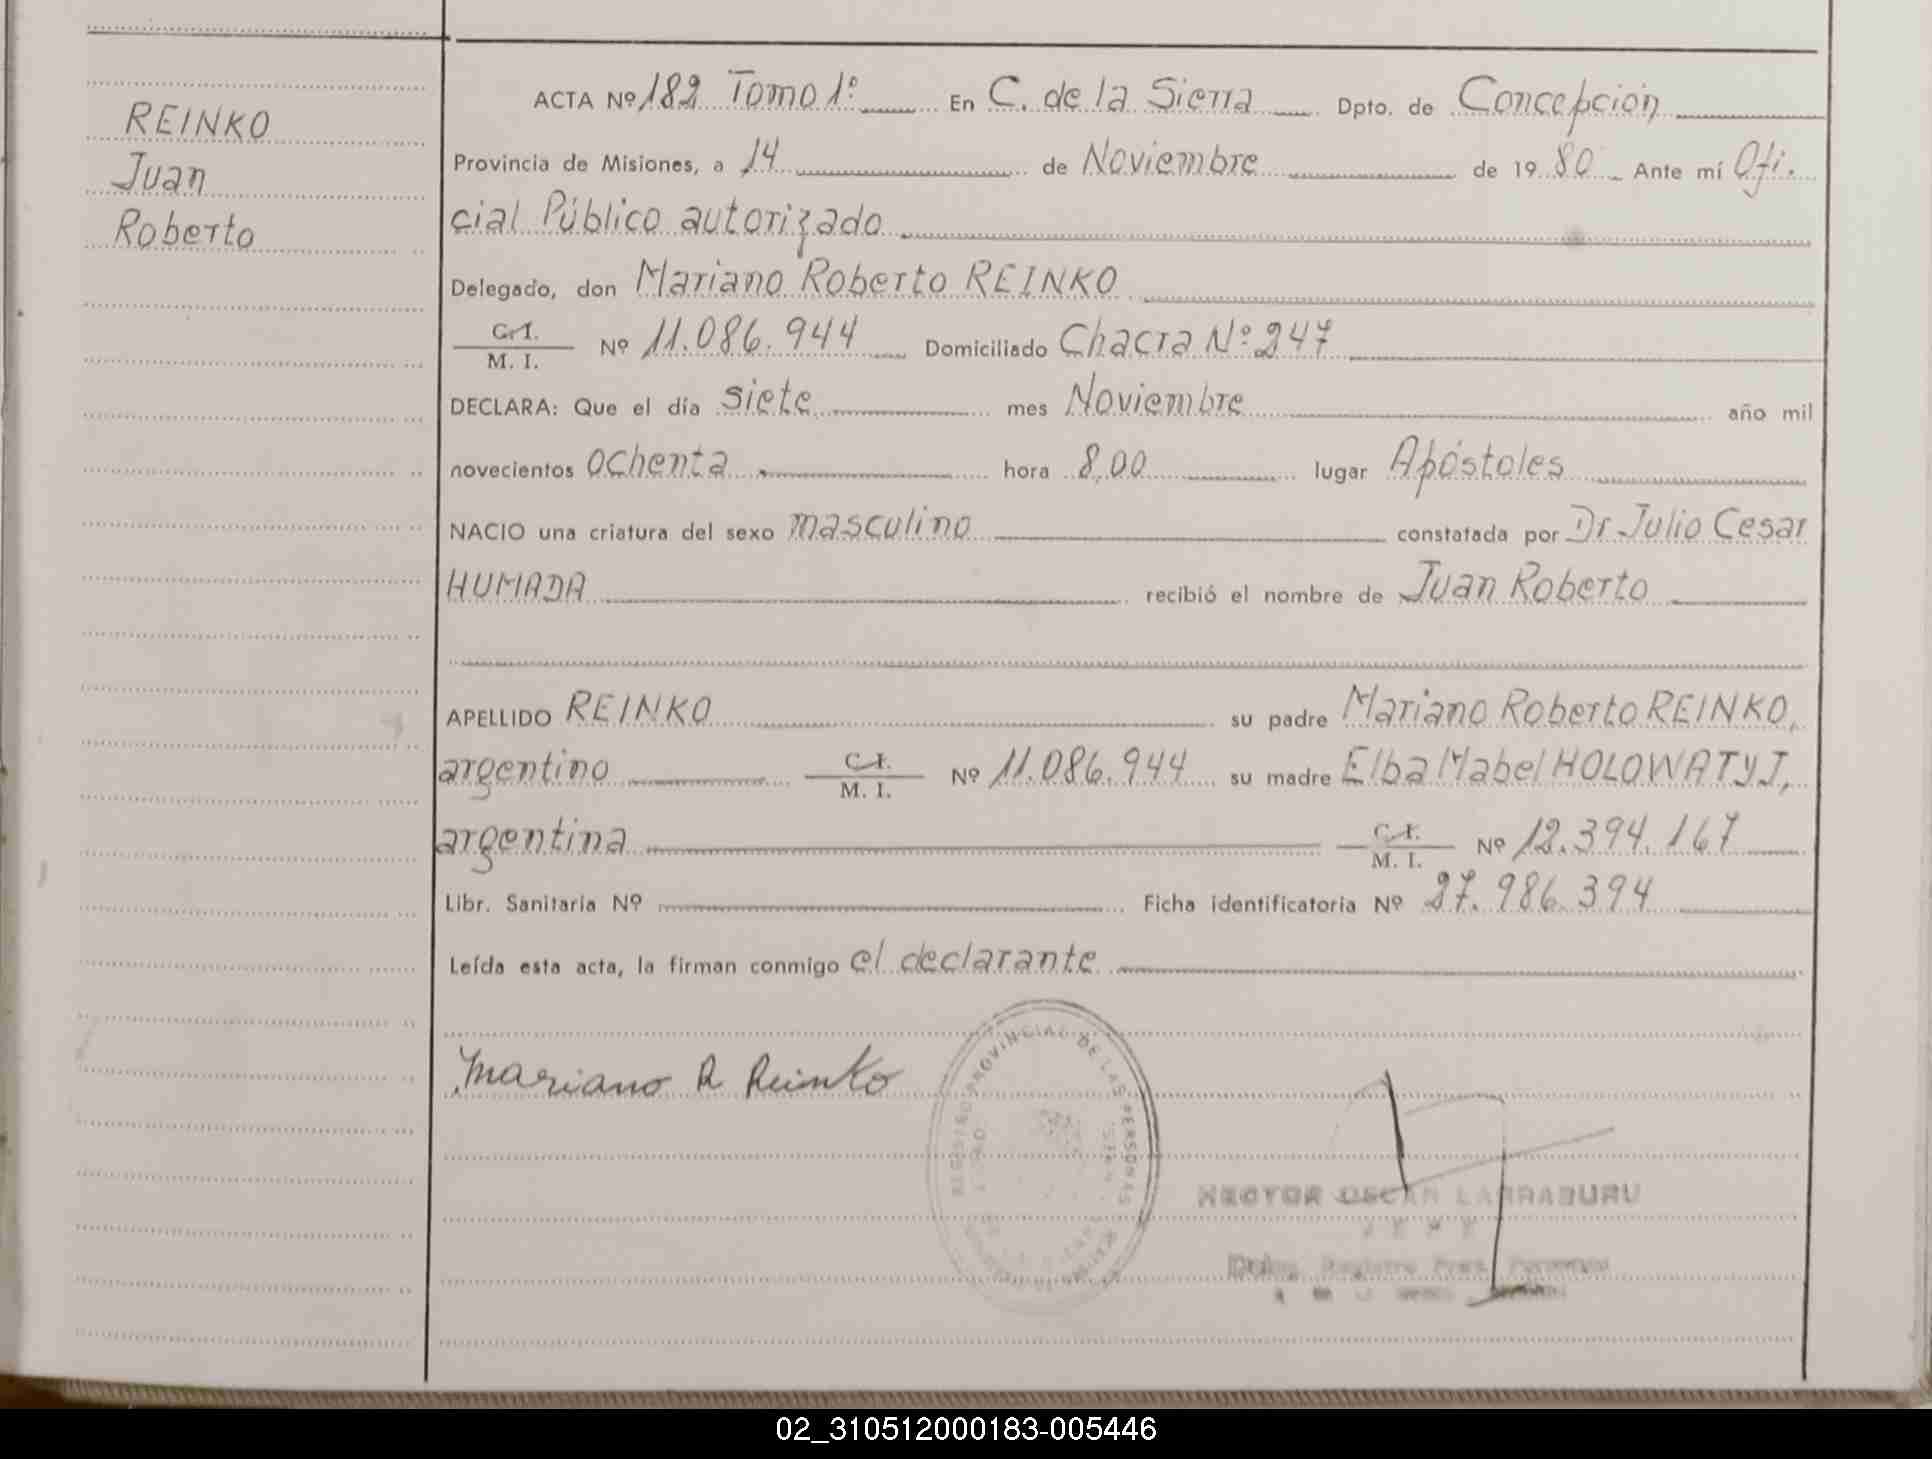 REINKO
Juan
Roberto
ACTA Nº 182 Tomo 1º En C. de la Sierra Dpto. de Concepción
Provincia de Misiones, a 14 de Noviembre de 1980 Ante mí Ofi.
cial Público autorizado
Delegado, don Mariano Roberto REINKO
C. I.
M. I. Nº 11.086.944 Domiciliado Chacra Nº 247
DECLARA: Que el día siete mes Noviembre año mil
novecientos ochenta hora 8,00 lugar Apóstoles
NACIO una criatura del sexo masculino constatada por Dr Julio Cesar
HUMADA recibió el nombre de Juan Roberto
APELLIDO REINKO su padre Mariano Roberto REINKO,
argentino C. I.
M. I. Nº 11.086.944 su madre Elba Mabel HOLOWATYJ,
argentina C. I.
M. I. Nº 12.394.167
Libr. Sanitaria Nº Ficha identificatoria Nº 27.986.394
Leída esta acta, la firman conmigo el declarante
Mariano R Reinko
REGISTRO PROVINCIAL DE LAS PERSONAS
HECTOR OSCAR LARRABURU
JEFE
02_310512000183-005446